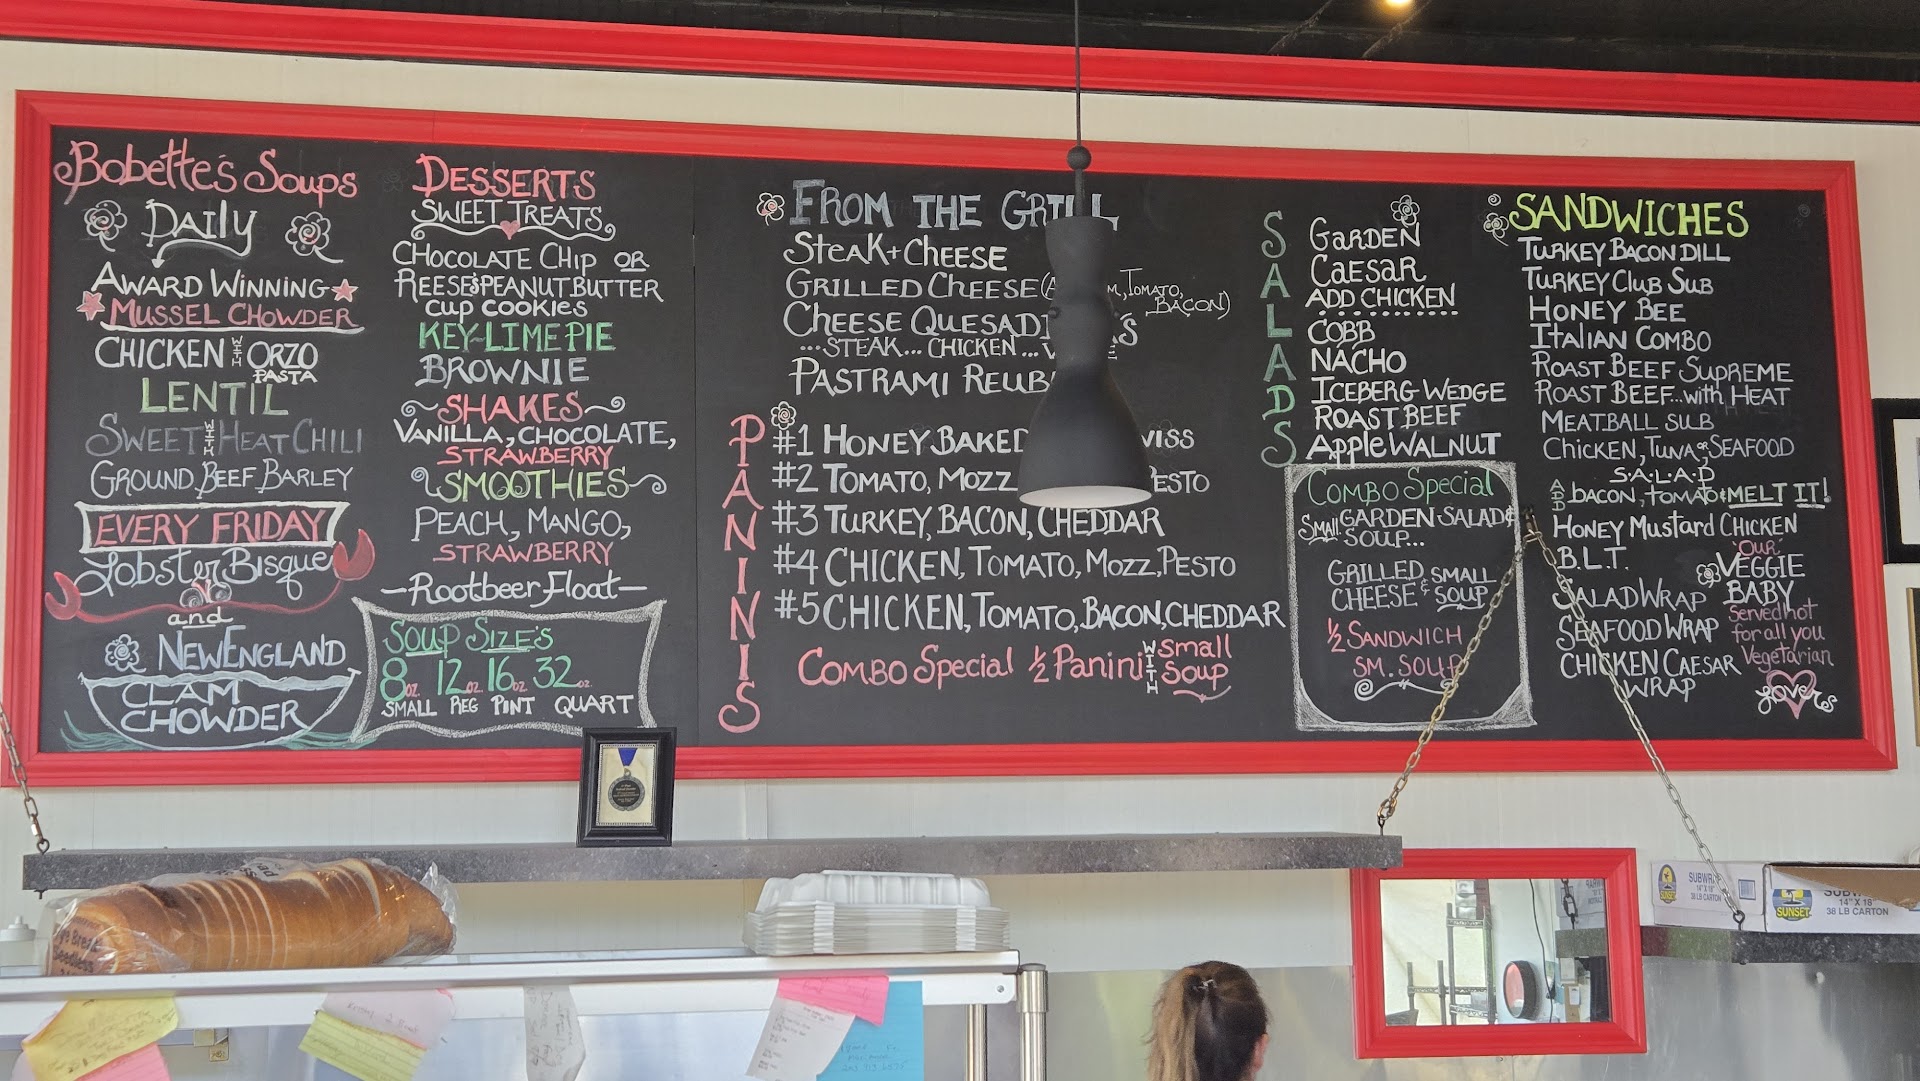 Bobette's Soups
Daily
Award Winning
Mussel Chowder
Chicken with Orzo
Pasta
Lentil
Sweet with Heat Chili
Ground Beef Barley
Every Friday
Lobster Bisque
and
New England
Clam
Chowder
Desserts
Sweet Treats
Chocolate Chip or
Reese's Peanut Butter
Cup Cookies
Key-Lime Pie
Brownie
Shakes
Vanilla, Chocolate,
Strawberry
Smoothies
Peach, Mango,
Strawberry
-Rootbeer Float-
Soup Size's
8oz. 12oz. 16oz. 32oz.
Small Reg Pint Quart
From the Grill
Steak + Cheese
Grilled Cheese (Tomato,
Bacon)
Cheese
...Steak... Chicken...
Pastrami
Paninis
#1 Honey Baked
#2 Tomato, Mozz
#3 Turkey, Bacon, Cheddar
#4 Chicken, Tomato, Mozz, Pesto
#5 Chicken, Tomato, Bacon, Cheddar
Combo Special 1/2 Panini with Small
Soup
Salads
Garden
Caesar
Add Chicken
Cobb
Nacho
Iceberg Wedge
Roast Beef
Apple Walnut
Combo Special
Small Garden Salad &
Soup...
Grilled
Cheese & Small
Soup
1/2 Sandwich
Sm. Soup
Sandwiches
Turkey Bacon Dill
Turkey Club Sub
Honey Bee
Italian Combo
Roast Beef Supreme
Roast Beef...with Heat
Meatball Sub
Chicken, Tuna, or Seafood
S.A.L.A.D
Add bacon, tomato & Melt It!
Honey Mustard Chicken
B.L.T.
Salad Wrap
Seafood Wrap
Chicken Caesar
Wrap
"Our"
Veggie
Baby
Served hot
for all you
Vegetarian
Lovers
Seedless
SUNSET
14" X 18"
38 LB CARTON
SUNSET
14" X 18"
38 LB CARTON